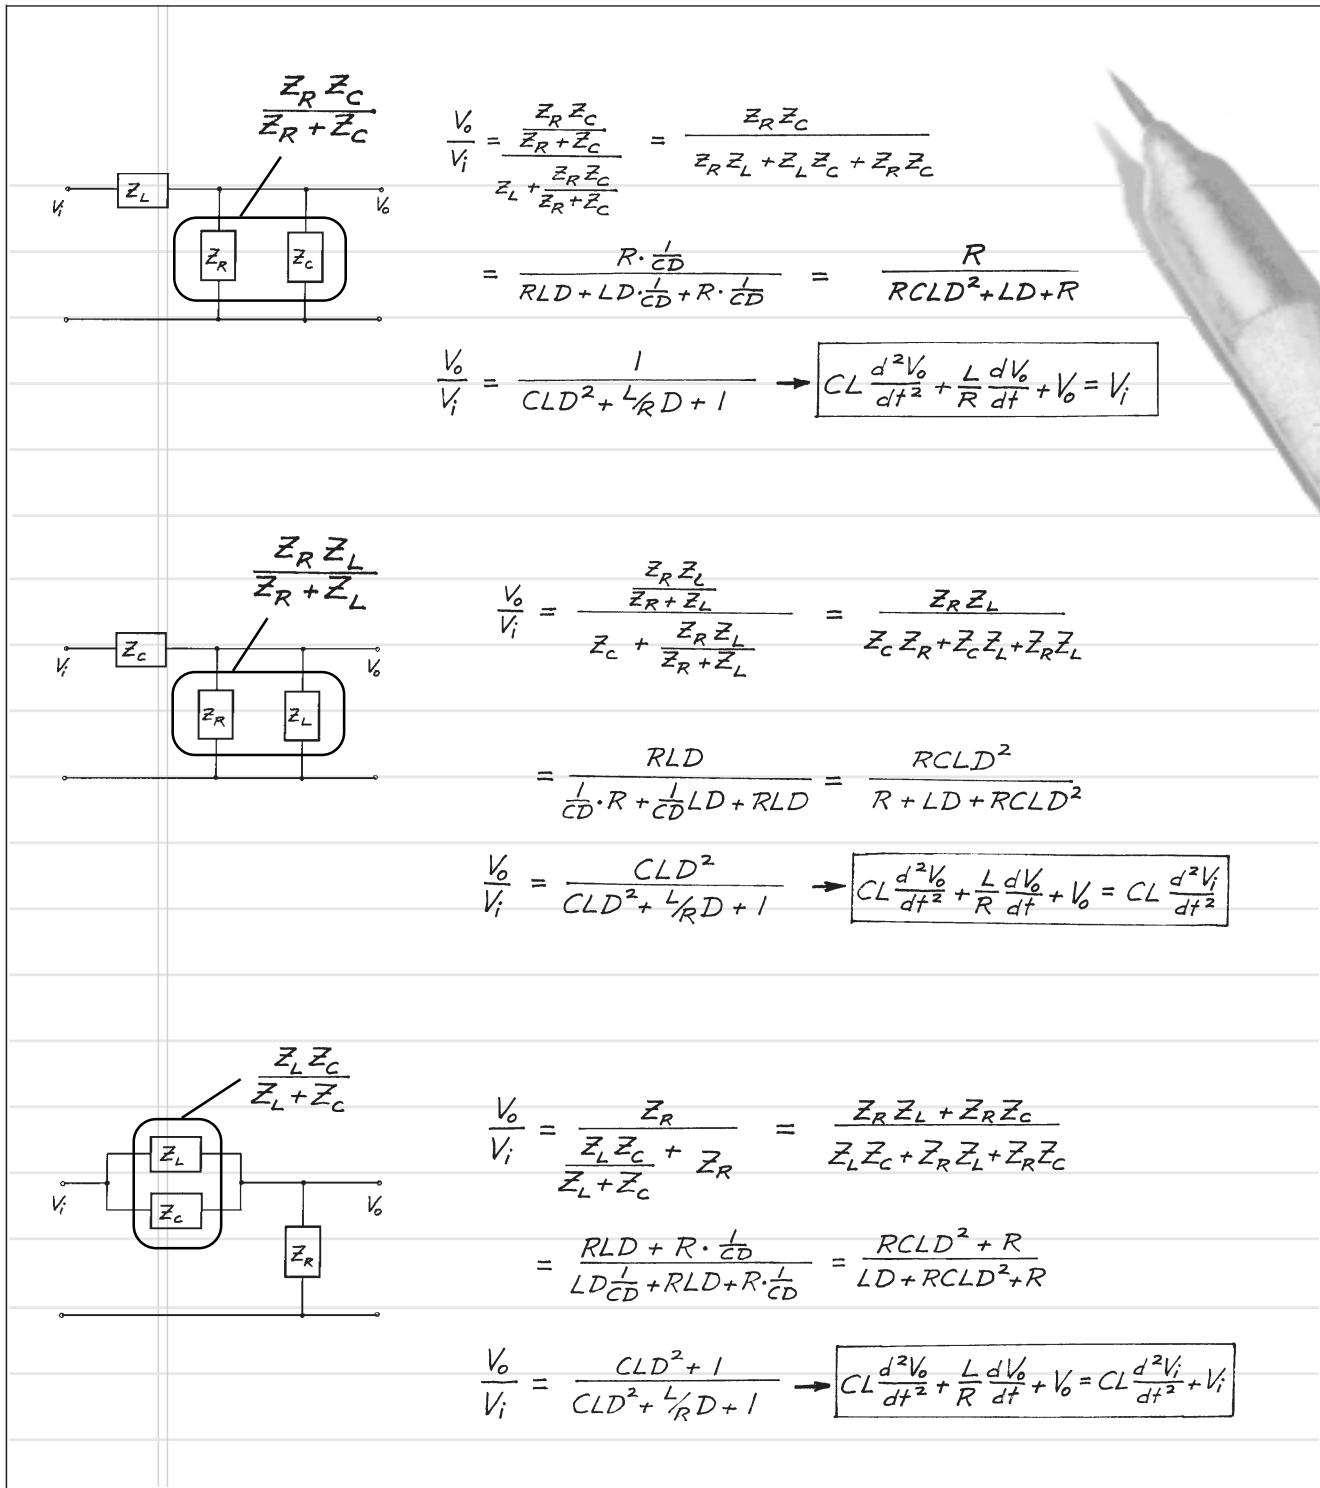 Z_R Z_C / (Z_R + Z_C)
V_i Z_L V_o
Z_R Z_C
V_o/V_i = (Z_R Z_C / (Z_R + Z_C)) / (Z_L + Z_R Z_C / (Z_R + Z_C)) = Z_R Z_C / (Z_R Z_L + Z_L Z_C + Z_R Z_C)
= (R · 1/CD) / (RLD + LD · 1/CD + R · 1/CD) = R / (RCLD² + LD + R)
V_o/V_i = 1 / (CLD² + L/R D + 1) → CL d²V_o/dt² + L/R dV_o/dt + V_o = V_i
Z_R Z_L / (Z_R + Z_L)
V_i Z_C V_o
Z_R Z_L
V_o/V_i = (Z_R Z_L / (Z_R + Z_L)) / (Z_C + Z_R Z_L / (Z_R + Z_L)) = Z_R Z_L / (Z_C Z_R + Z_C Z_L + Z_R Z_L)
= RLD / (1/CD · R + 1/CD LD + RLD) = RCLD² / (R + LD + RCLD²)
V_o/V_i = CLD² / (CLD² + L/R D + 1) → CL d²V_o/dt² + L/R dV_o/dt + V_o = CL d²V_i/dt²
Z_L Z_C / (Z_L + Z_C)
Z_L
V_i Z_C V_o
Z_R
V_o/V_i = Z_R / (Z_L Z_C / (Z_L + Z_C) + Z_R) = (Z_R Z_L + Z_R Z_C) / (Z_L Z_C + Z_R Z_L + Z_R Z_C)
= (RLD + R · 1/CD) / (LD 1/CD + RLD + R · 1/CD) = (RCLD² + R) / (LD + RCLD² + R)
V_o/V_i = (CLD² + 1) / (CLD² + L/R D + 1) → CL d²V_o/dt² + L/R dV_o/dt + V_o = CL d²V_i/dt² + V_i